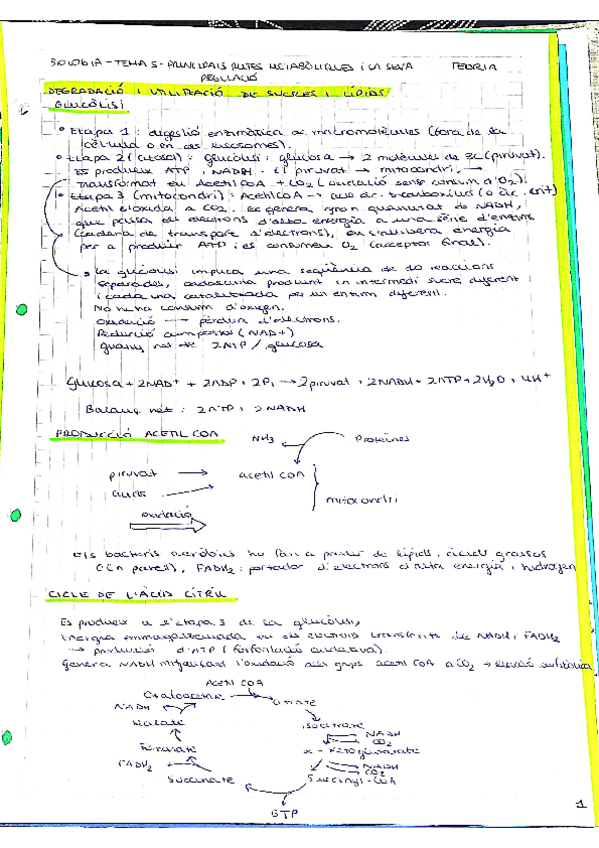 BIOLOGIA - TEMA 5 - PRINCIPALS RUTES METABÒLIQUES I LA SEVA REGULACIÓ TEORIA
DEGRADACIÓ I UTILITZACIÓ DE SUCRES I LÍPIDS:
GLUCÒLISI
Etapa 1: digestió enzimàtica de macromolècules (fora de la
cèl·lula o en els lisosomes).
Etapa 2 (citosol): Glucòlisi: glucosa → 2 molècules de 3C (piruvat).
Es produeix ATP i NADH. El piruvat → mitocondri, →
transformat en Acetil CoA + CO2 (oxidació sense consum d'O2).
Etapa 3 (mitocondri): Acetil CoA → cicle àc. tricarboxílics (o àc. cítric)
Acetil oxidat a CO2. Es genera gran quantitat de NADH,
que passa els electrons d'alta energia a una sèrie d'enzims
(cadena de transport d'electrons), on s'allibera energia
per a produir ATP i es consumeix O2 (acceptor final).
La glucòlisi implica una seqüència de 10 reaccions
separades, cadascuna produint un intermedi sucre diferent
i cada una catalitzada per un enzim diferent.
No hi ha consum d'oxigen.
Oxidació → pèrdua d'electrons.
(NAD+)
Guany net de 2ATP / glucosa
Glucosa + 2NAD+ + 2ADP + 2Pi → 2piruvat + 2NADH + 2ATP + 2H2O + 4H+
Balanç net: 2ATP i 2NADH
PRODUCCIÓ ACETIL COA
NH3 Proteïnes
piruvat → acetil COA
àcids →
mitocondri
oxidació
Els bacteris aeròbics ho fan a partir de lípids, àcids grassos
(Cn parell), FADH2: portador d'electrons d'alta energia i hidrogen
CICLE DE L'ÀCID CÍTRIC
Es produeix a l'etapa 3 de la glucòlisi,
Energia emmagatzemada en els electrons transferits de NADH i FADH2
→ producció d'ATP (fosforilació oxidativa).
Genera NADH mitjançant l'oxidació dels grups acetil COA a CO2 → Reacció
ACETIL COA
Oxaloacetat
Citrat
NADH
Malat
Isocitrat
NADH
CO2
α - Ketoglutarate
Fumarate
NADH
CO2
FADH2
Succinate
Succinyl-CoA
GTP
1